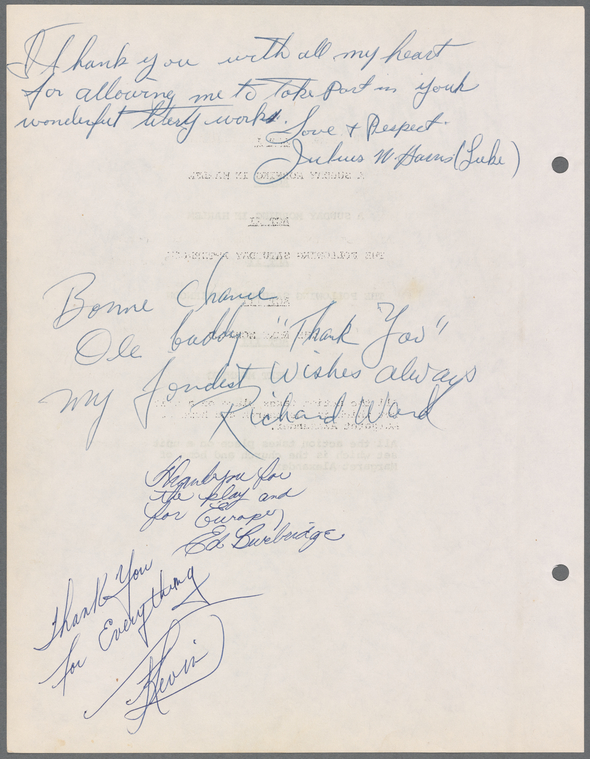 I thank you with all my heart
for allowing me to take part in your
wonderful litery works.
Love + Respect.
Julius W. Harris (Luke)
Bonne Chance
Ole buddy "Thank You"
My fondest Wishes always
Richard Ward
Thank you for
the play and
for Europe,
Ed Burbridge
Thank You
for Everything
Kevin